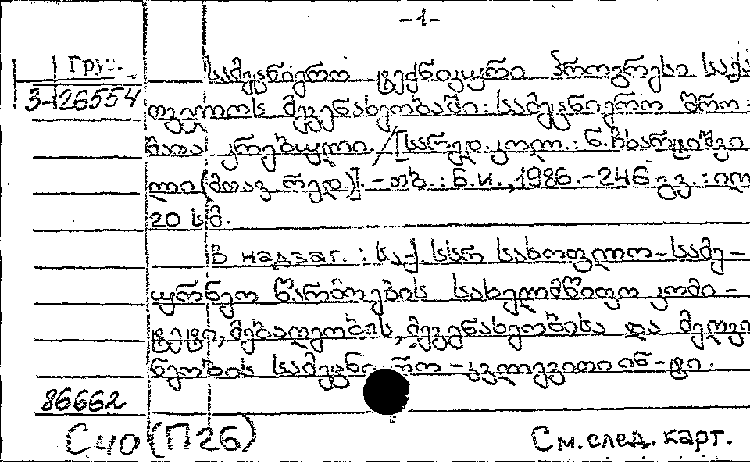 -1-
Груз.
3-126554
სამეცნიერო-ტექნიკური პროგრესი საქა
თველოს მევენახეობაში: სამეცნიერო შრო-
მათა კრებული. / [სარედ. კოლ.: ნ. ჩხარტიშვი
ლი (მთავ. რედ.)]. - თბ.: Б.И., 1986. - 246 გვ.: ილ
20 სმ.
В надзаг.: საქ. სსრ სასოფლო-სამე-
ურნეო წარმოების სახელმწიფო კომი-
ტეტი, მებაღეობის, მევენახეობისა და მეღვი
ნეობის სამეცნიერო-კვლევითი ინ-ტი.
86662
С40(П26)
См. след. карт.